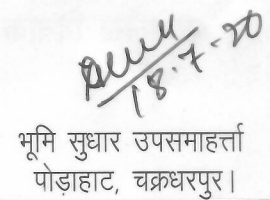 18.7.20
भूमि सुधार उपसमाहर्त्ता
पोड़ाहाट, चक्रधरपुर।